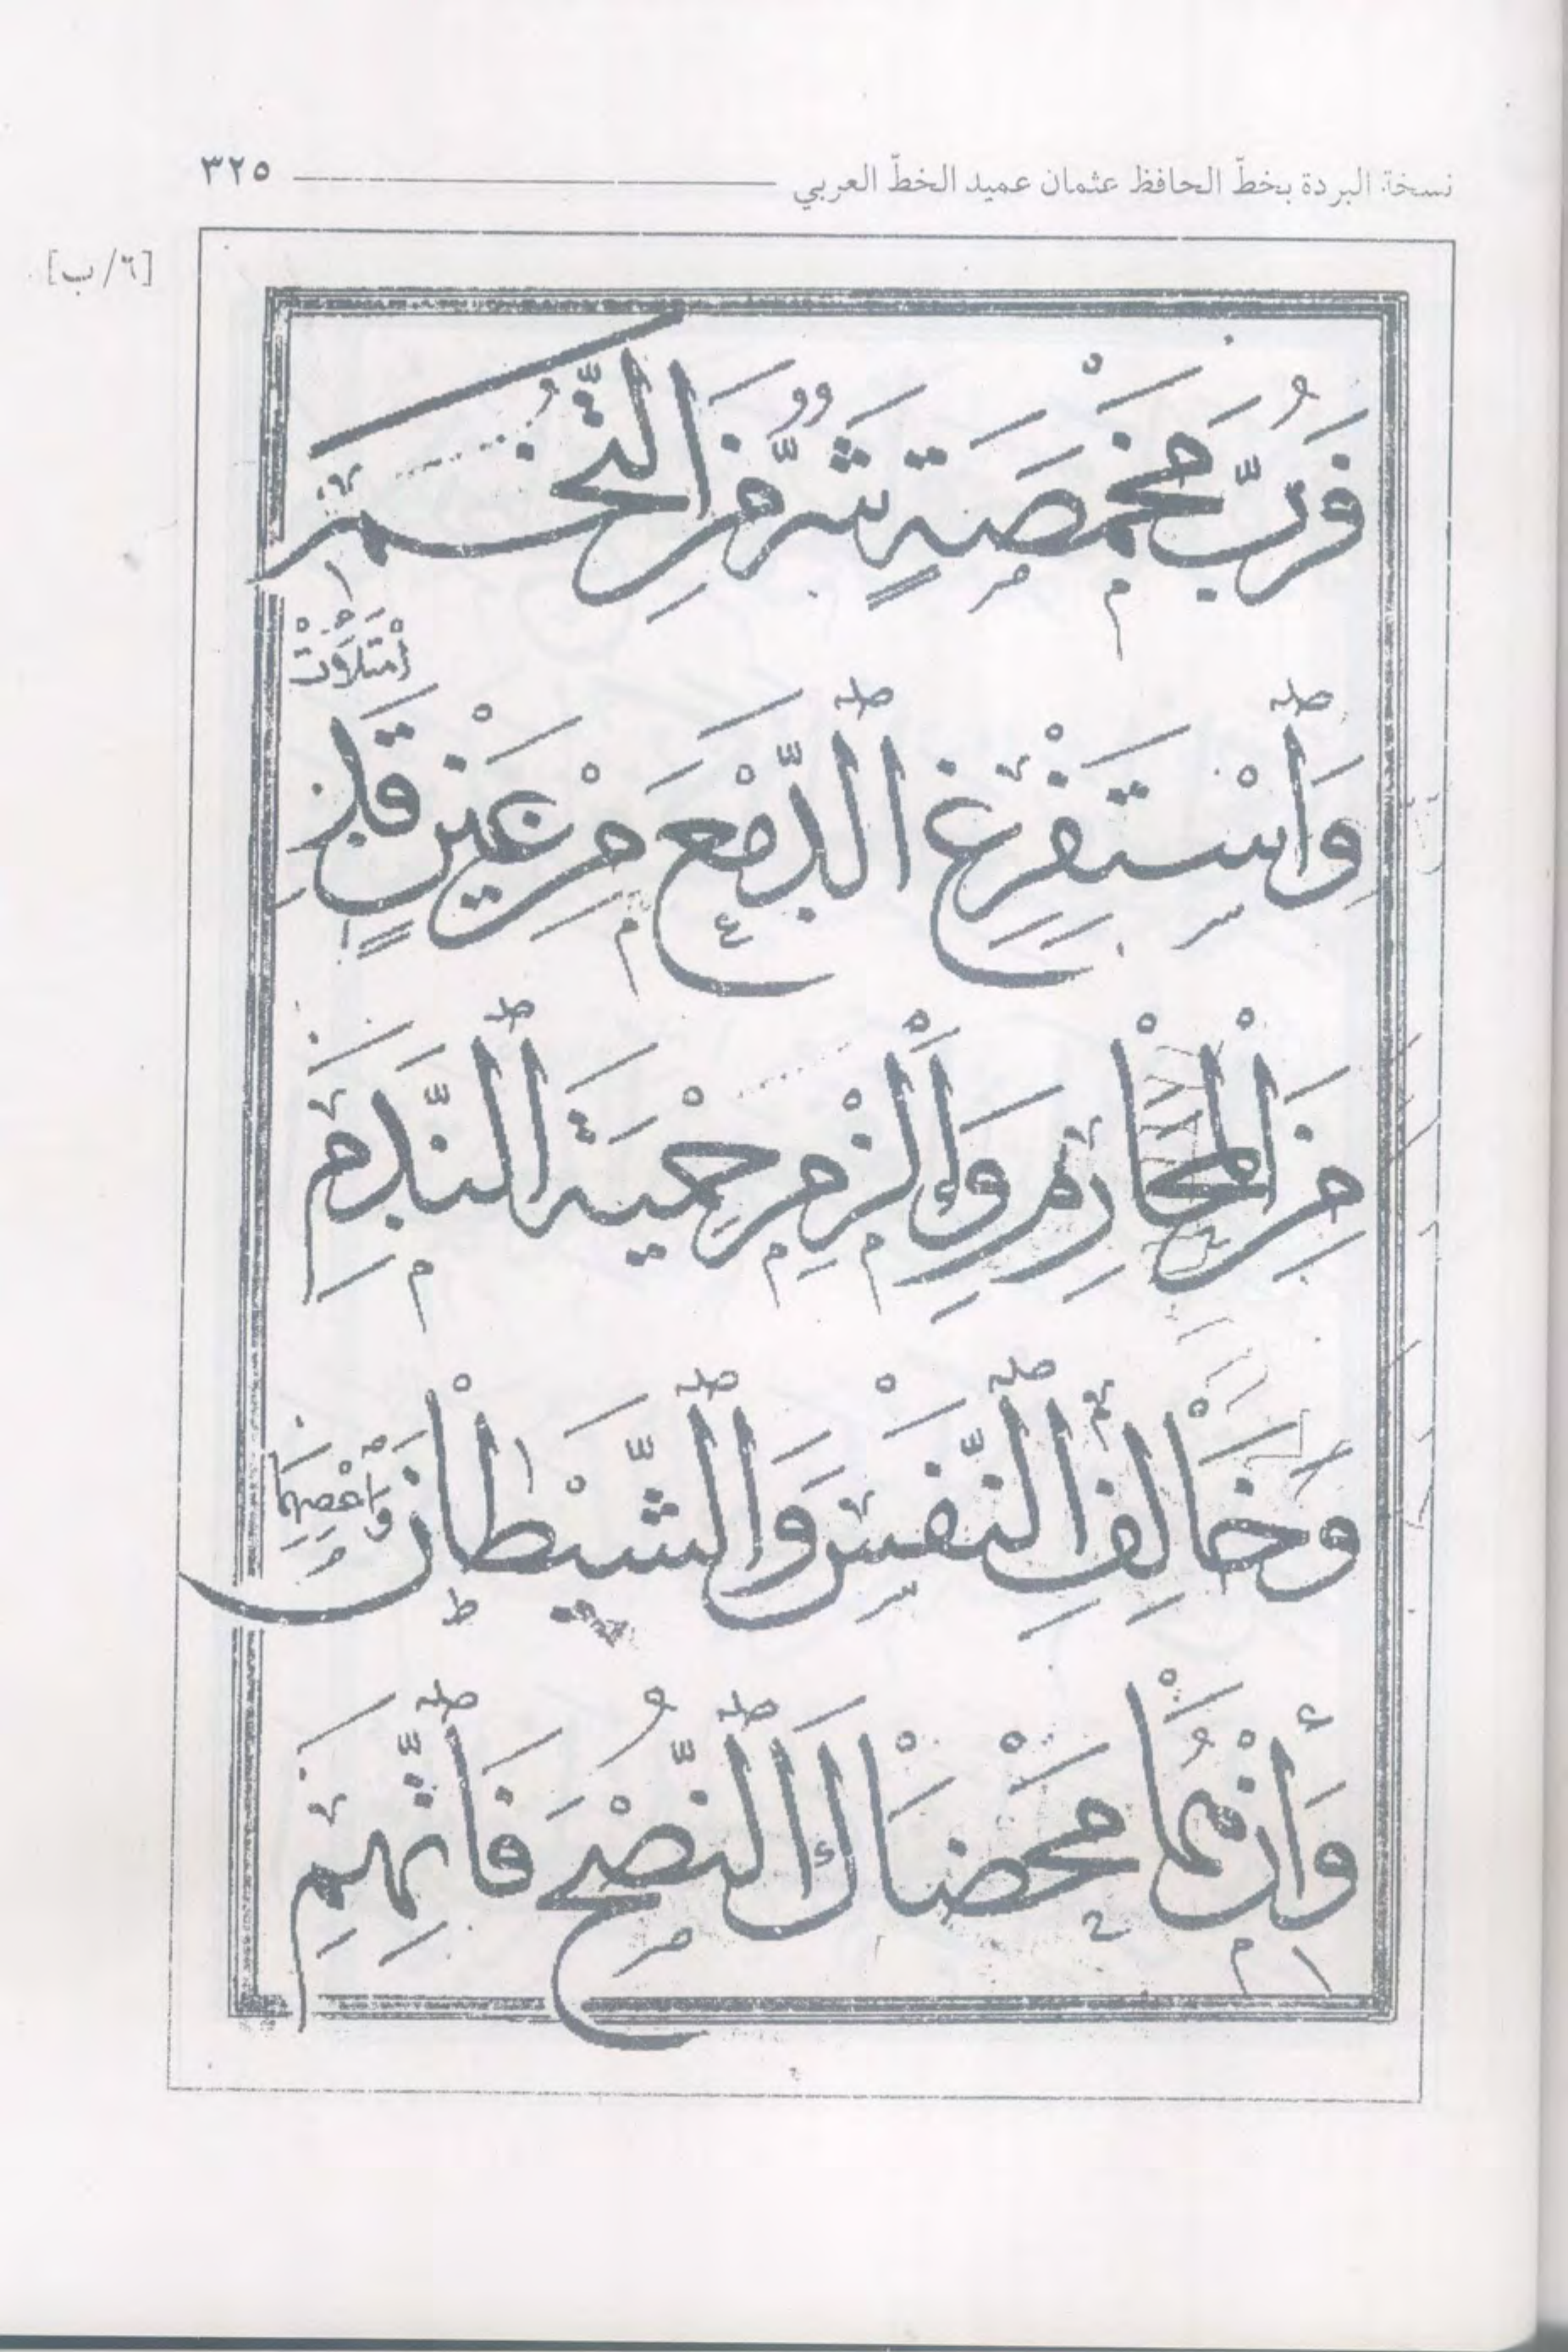 نسخة البردة بخطّ الحافظ عثمان عميد الخطّ العربي ٣٢٥
[٦/ب]
فَرُبَّ مَخْمَصَةٍ شَرٌّ مِنَ التُّخَمِ
وَاسْتَفْرِغِ الدَّمْعَ مِنْ عَيْنٍ قَدِ
امْتَلَأَتْ
مِنَ الْمَحَارِمِ وَالْزَمْ حِمْيَةَ النَّدَمِ
وَخَالِفِ النَّفْسَ وَالشَّيْطَانَ وَاعْصِهِمَا
وَإِنْ هُمَا مَحَضَاكَ النُّصْحَ فَاتَّهِمِ